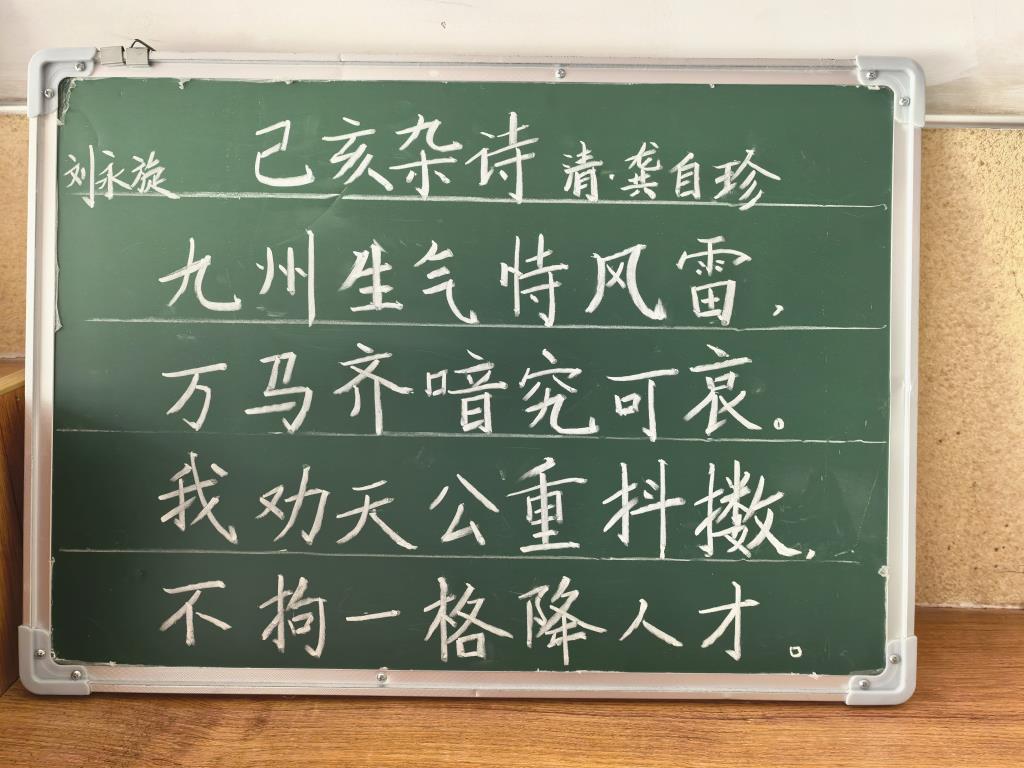 刘永旋 己亥杂诗 清·龚自珍
九州生气恃风雷，
万马齐喑究可哀。
我劝天公重抖擞，
不拘一格降人才。